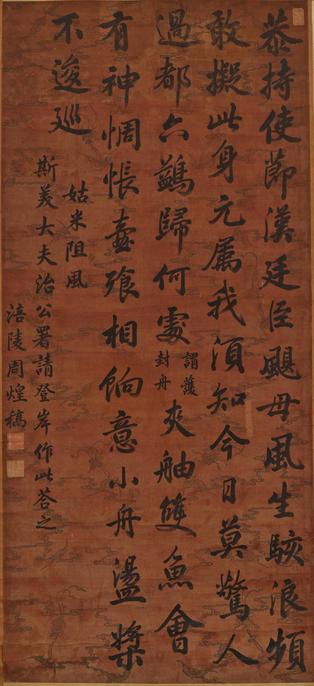 恭持使節漢廷臣颶母風生駭浪頻
敢擬此身元屬我須知今日莫驚人
過都六鷁歸何處謂護封舟夾舳雙魚會
有神惆悵壺飱相餉意小舟盪槳
不逡巡
姑米阻風
斯美大夫治公署請登岸作此答之
涪陵周煌稿